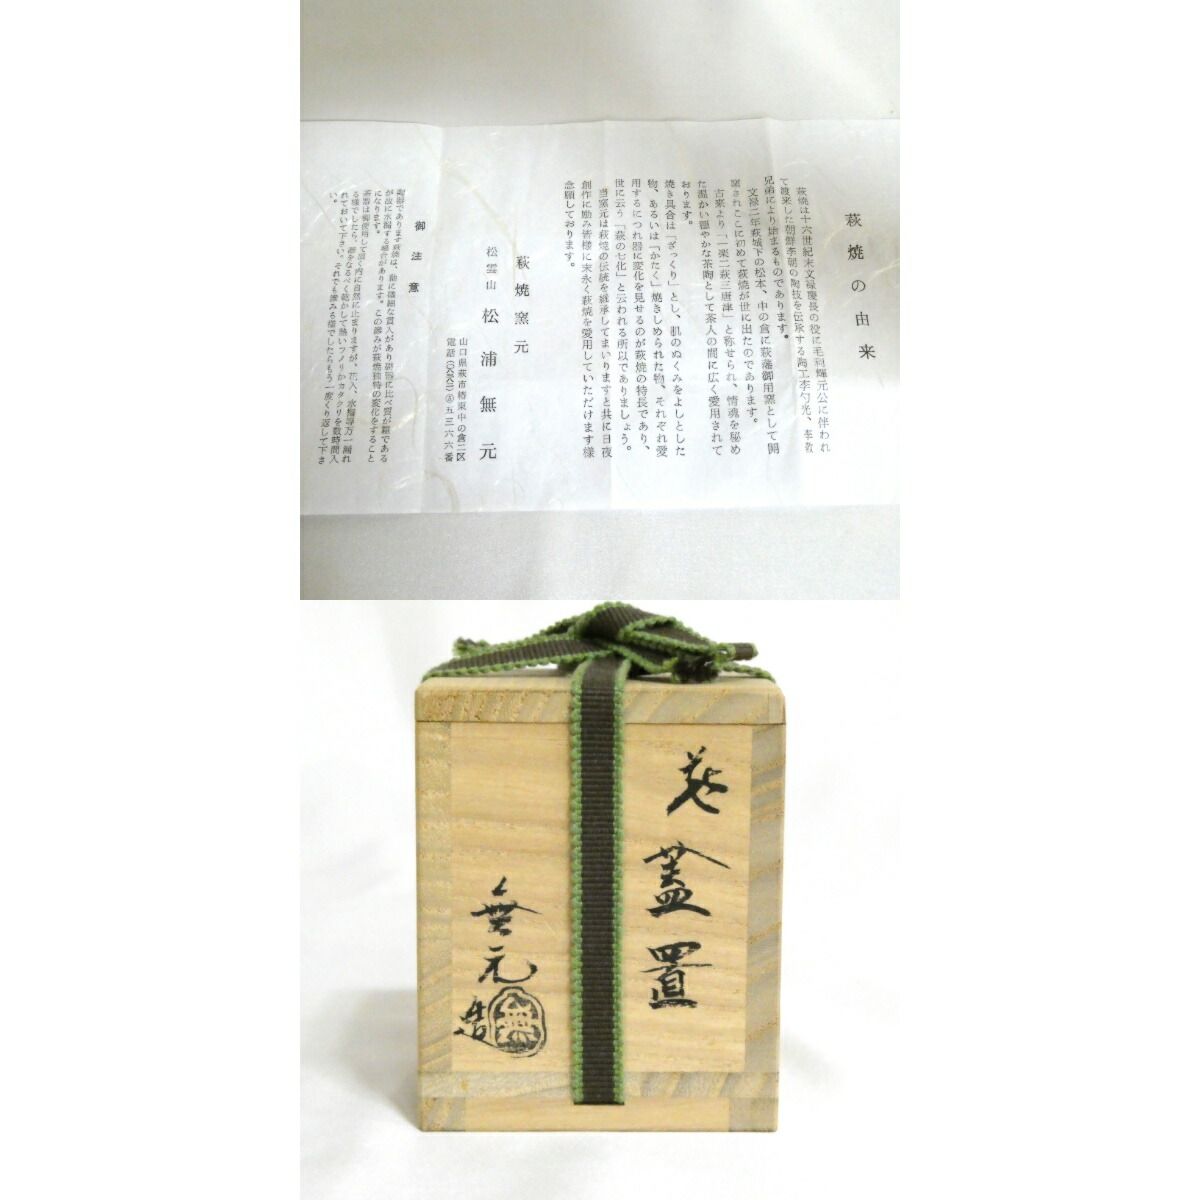 萩焼の由来
萩焼は十六世紀末文禄慶長の役に毛利輝元公に伴われ
て渡来した朝鮮李朝の陶技を伝承する陶工李勺光、李敬
兄弟により始まるものであります。
文禄二年萩城下の松本、中の倉に萩藩御用窯として開
窯されここに初めて萩焼が世に出たのであります。
古来より「一楽二萩三唐津」と称せられ、情魂を秘め
た温かい穏やかな茶陶として茶人の間に広く愛用されて
おります。
焼き具合は「ざっくり」とし、肌のぬくみをよしとした
物、あるいは「かたく」焼きしめられた物、それぞれ愛
用するにつれ器に変化を見せるのが萩焼の特長であり、
世に云う「萩の七化」と云われる所以でありましょう。
当窯元は萩焼の伝統を継承してまいりますと共に日夜
創作に励み皆様に末永く萩焼を愛用していただけます様
念願しております。
萩焼窯元
松雲山 松浦無元
山口県萩市椿東中の倉二区
電話(〇八三八二)②五三六六番
御注意
陶器であります萩焼は、釉に微細な貫入があり磁器に比べ質が粗である
が故に水漏する場合があります。この滲みが萩焼独特の変化をすること
になります。
茶器は御使用して頂く内に自然に止まりますが、花入、水指等万一漏れ
る様でしたら、器をなるべく乾かして熱いフノリかカタクリを数時間入
れておいて下さい。それでも滲みる様でしたらもう一度くり返して下さ
い。
萩 蓋置
無元造
無